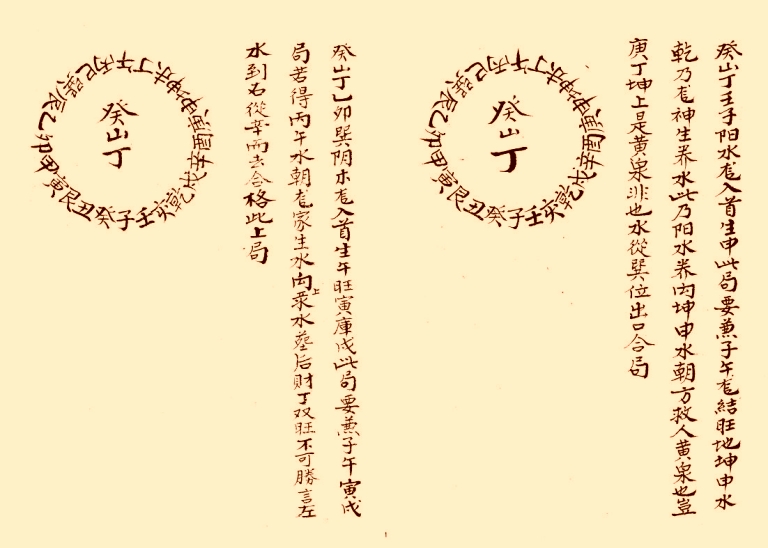 癸山丁壬子阳水龙入首生申此局要兼子午龙結旺地坤申水
乾乃龙神生养水此乃阳水养内坤申水朝方救人黄泉也豈
庚丁坤上是黄泉非也水從巽位出口合局
癸山丁
壬子癸丑艮寅甲卯乙辰巽巳丙午丁未坤申庚酉辛戌乾亥
癸山丁乙卯巽阴木龙入首生午旺寅庫戌此局要兼子午寅戌
局若得丙午水朝龙家生水内上眾水墓后財丁双旺不可勝言左
水到右從辛而去合格此上局
癸山丁
壬子癸丑艮寅甲卯乙辰巽巳丙午丁未坤申庚酉辛戌乾亥